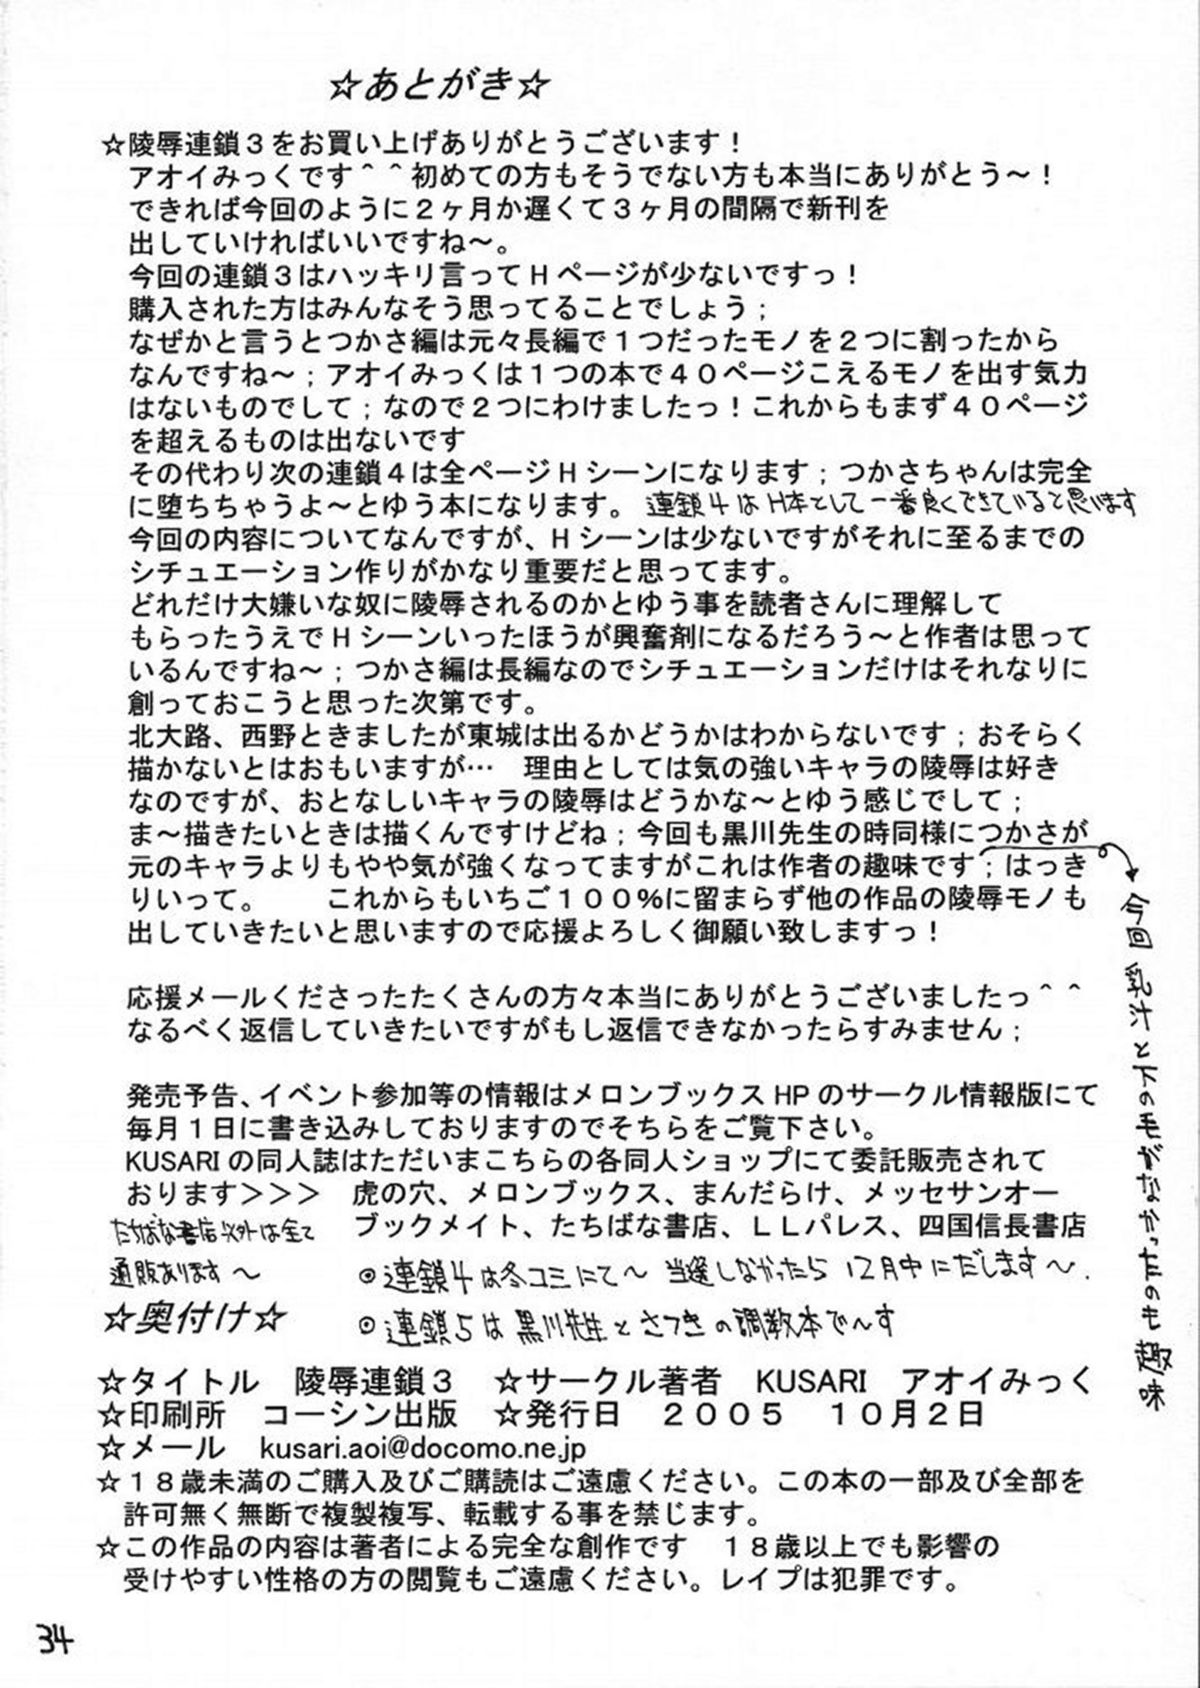 ☆あとがき☆
☆陵辱連鎖3をお買い上げありがとうございます！
アオイみっくです＾＾初めての方もそうでない方も本当にありがとう～！
できれば今回のように２ヶ月か遅くて３ヶ月の間隔で新刊を
出していければいいですね～。
今回の連鎖３はハッキリ言ってＨページが少ないですっ！
購入された方はみんなそう思ってることでしょう；
なぜかと言うとつかさ編は元々長編で１つだったモノを２つに割ったから
なんですね～；アオイみっくは１つの本で４０ページこえるモノを出す気力
はないものでして；なので２つにわけましたっ！これからもまず４０ページ
を超えるものは出ないです
その代わり次の連鎖４は全ページＨシーンになります；つかさちゃんは完全
に堕ちちゃうよ～とゆう本になります。 連鎖4はH本として一番良くできていると思います
今回の内容についてなんですが、Ｈシーンは少ないですがそれに至るまでの
シチュエーション作りがかなり重要だと思ってます。
どれだけ大嫌いな奴に陵辱されるのかとゆう事を読者さんに理解して
もらったうえでＨシーンいったほうが興奮剤になるだろう～と作者は思って
いるんですね～；つかさ編は長編なのでシチュエーションだけはそれなりに
創っておこうと思った次第です。
北大路、西野ときましたが東城は出るかどうかはわからないです；おそらく
描かないとはおもいますが… 理由としては気の強いキャラの陵辱は好き
なのですが、おとなしいキャラの陵辱はどうかな～とゆう感じでして；
ま～描きたいときは描くんですけどね；今回も黒川先生の時同様につかさが
元のキャラよりもやや気が強くなってますがこれは作者の趣味です；はっき
りいって。 これからもいちご１００％に留まらず他の作品の陵辱モノも
出していきたいと思いますので応援よろしく御願い致しますっ！
今回乳汁と下の毛がなかったのも趣味
応援メールくださったたくさんの方々本当にありがとうございましたっ＾＾
なるべく返信していきたいですがもし返信できなかったらすみません；
発売予告、イベント参加等の情報はメロンブックスHPのサークル情報版にて
毎月１日に書き込みしておりますのでそちらをご覧下さい。
KUSARIの同人誌はただいまこちらの各同人ショップにて委託販売されて
おります＞＞＞ 虎の穴、メロンブックス、まんだらけ、メッセサンオー
ブックメイト、たちばな書店、ＬＬパレス、四国信長書店
たちばな書店以外は全て
通販あります～
◎連鎖4は冬コミにて～ 当選しなかったら12月中にだします～.
◎連鎖5は黒川先生とさつきの調教本で～す
☆奥付け☆
☆タイトル 陵辱連鎖３ ☆サークル著者 KUSARI アオイみっく
☆印刷所 コーシン出版 ☆発行日 ２００５ １０月２日
☆メール kusari.aoi@docomo.ne.jp
☆１８歳未満のご購入及びご購読はご遠慮ください。この本の一部及び全部を
許可無く無断で複製複写、転載する事を禁じます。
☆この作品の内容は著者による完全な創作です １８歳以上でも影響の
受けやすい性格の方の閲覧もご遠慮ください。レイプは犯罪です。
34